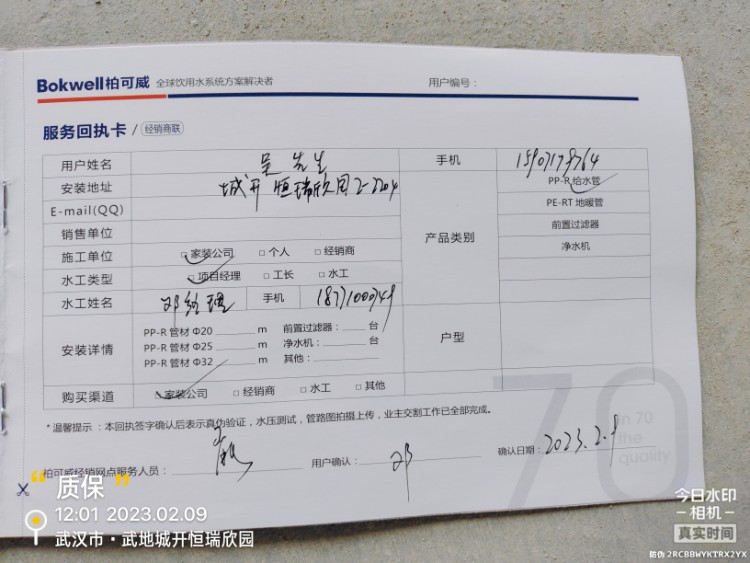 Bokwell柏可威 全球饮用水系统方案解决者 用户编号：
服务回执卡 / 经销商联
用户姓名 吴先生 手机
安装地址 城开恒瑞欣园2-2204 PP-R给水管
E-mail(QQ) PE-RT 地暖管
销售单位 产品类别 前置过滤器
施工单位 □家装公司 □个人 □经销商 净水机
水工类型 □项目经理 □工长 □水工
水工姓名 邓经理 手机
安装详情 户型
PP-R 管材 Φ20 m 前置过滤器： 台
PP-R 管材 Φ25 m 净水机： 台
PP-R 管材 Φ32 m 其他：
购买渠道 □家装公司 □经销商 □水工 □其他
*温馨提示：本回执签字确认后表示真伪验证，水压测试，管路图拍摄上传，业主交割工作已全部完成。
柏可威经销网点服务人员： 用户确认： 邓 确认日期： 2023.2.9
70
in 70
the
quality
质保
12:01 2023.02.09
武汉市·武地城开恒瑞欣园
今日水印
-相机-
真实时间
防伪 2RCBBWYKTRX2YX